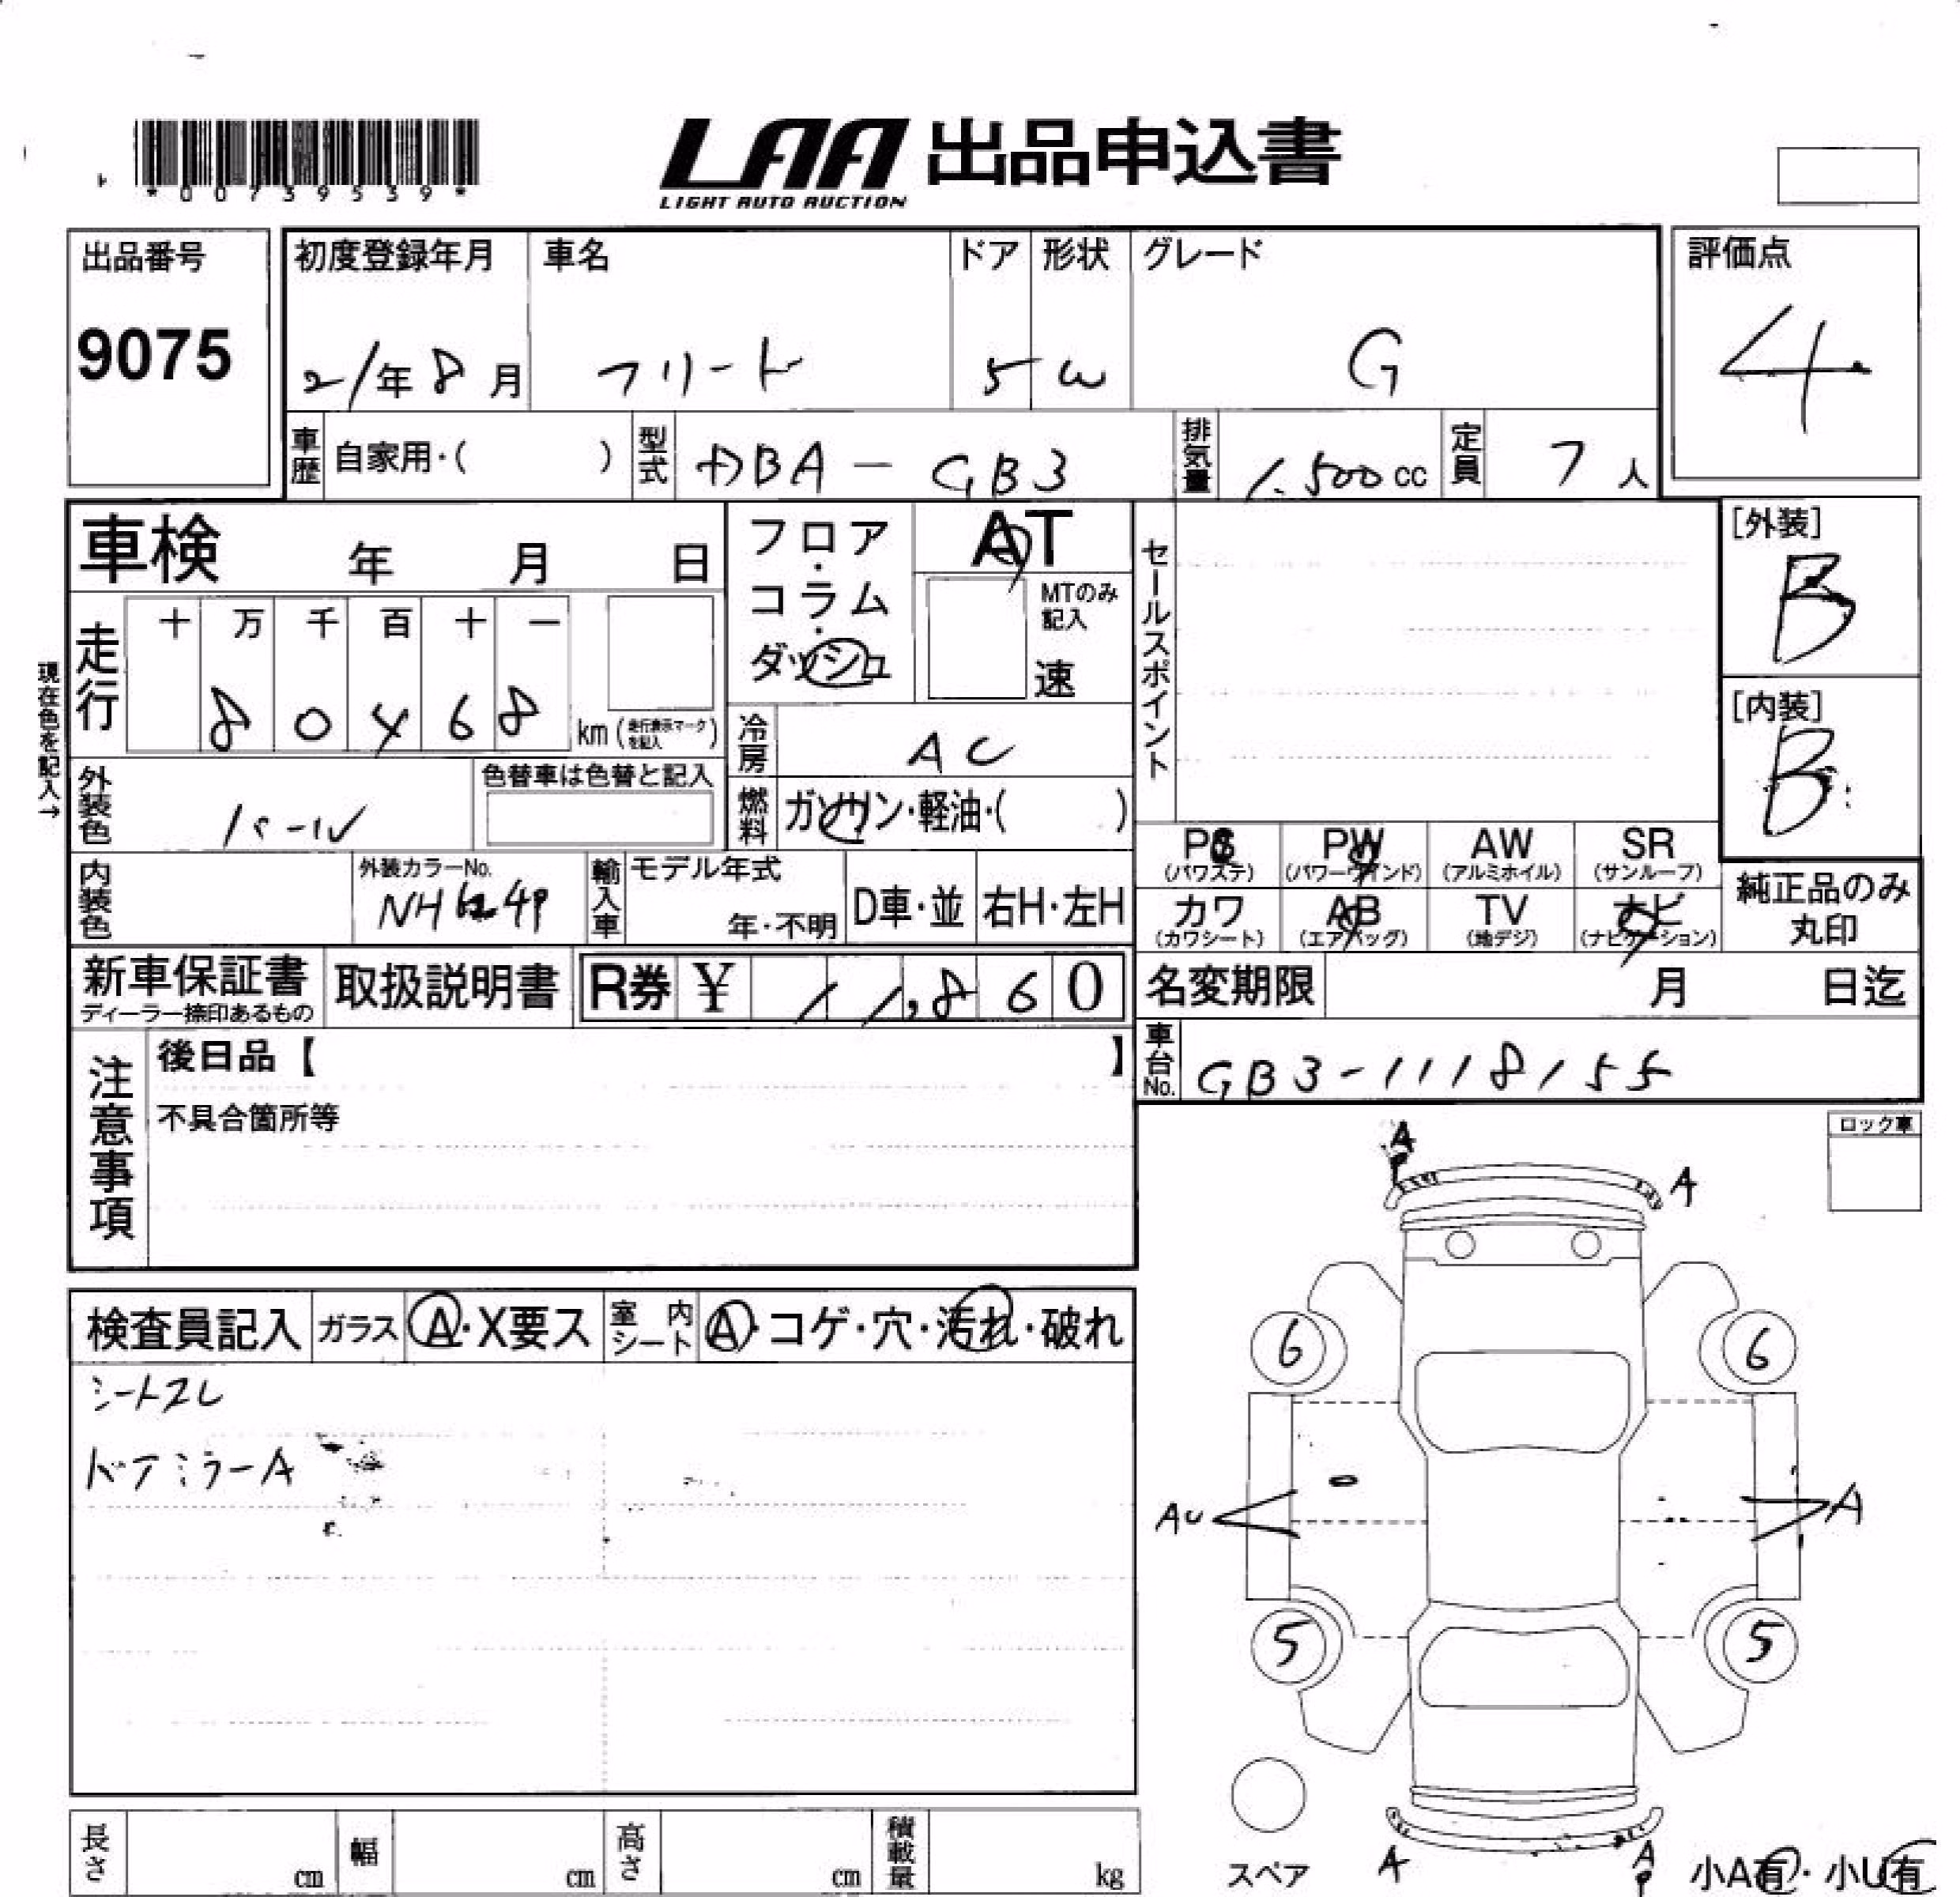 *00739539*
LAA 出品申込書
LIGHT AUTO AUCTION
出品番号
9075
初度登録年月
21年8月
車名
フリード
ドア
5
形状
W
グレード
G
評価点
4.
車歴 自家用・( )
型式 DBA-GB3
排気量 1.500cc
定員 7人
車検 年 月 日
フロア・コラム・ダッシュ
AT
MTのみ記入
速
セールスポイント
[外装]
B
[内装]
B
現在色を記入→
走行
十 万 千 百 十 一
8 0 4 6 8 km (走行表示マークを記入)
冷房 AC
外装色 パール
色替車は色替と記入
燃料 ガソリン・軽油・( )
PS (パワステ)
PW (パワーウインド)
AW (アルミホイル)
SR (サンルーフ)
カワ (カワシート)
AB (エアバッグ)
TV (地デジ)
ナビ (ナビゲーション)
純正品のみ丸印
内装色
外装カラーNo.
輸入車
モデル年式
年・不明
D車・並
右H・左H
新車保証書
ディーラー捺印あるもの
取扱説明書
R券 ¥ 11,860
名変期限 月 日迄
車台No. GB3-1118155
注意事項
後日品【 】
不具合箇所等
ロック車
A
P
A
検査員記入
ガラス A・X要ス
室内シート A・コゲ・穴・汚れ・破れ
シートスレ
ドアミラーA
6
6
AU
A
5
5
スペア
A
A
P
小A有・小U有
長さ cm
幅 cm
高さ cm
積載量 kg